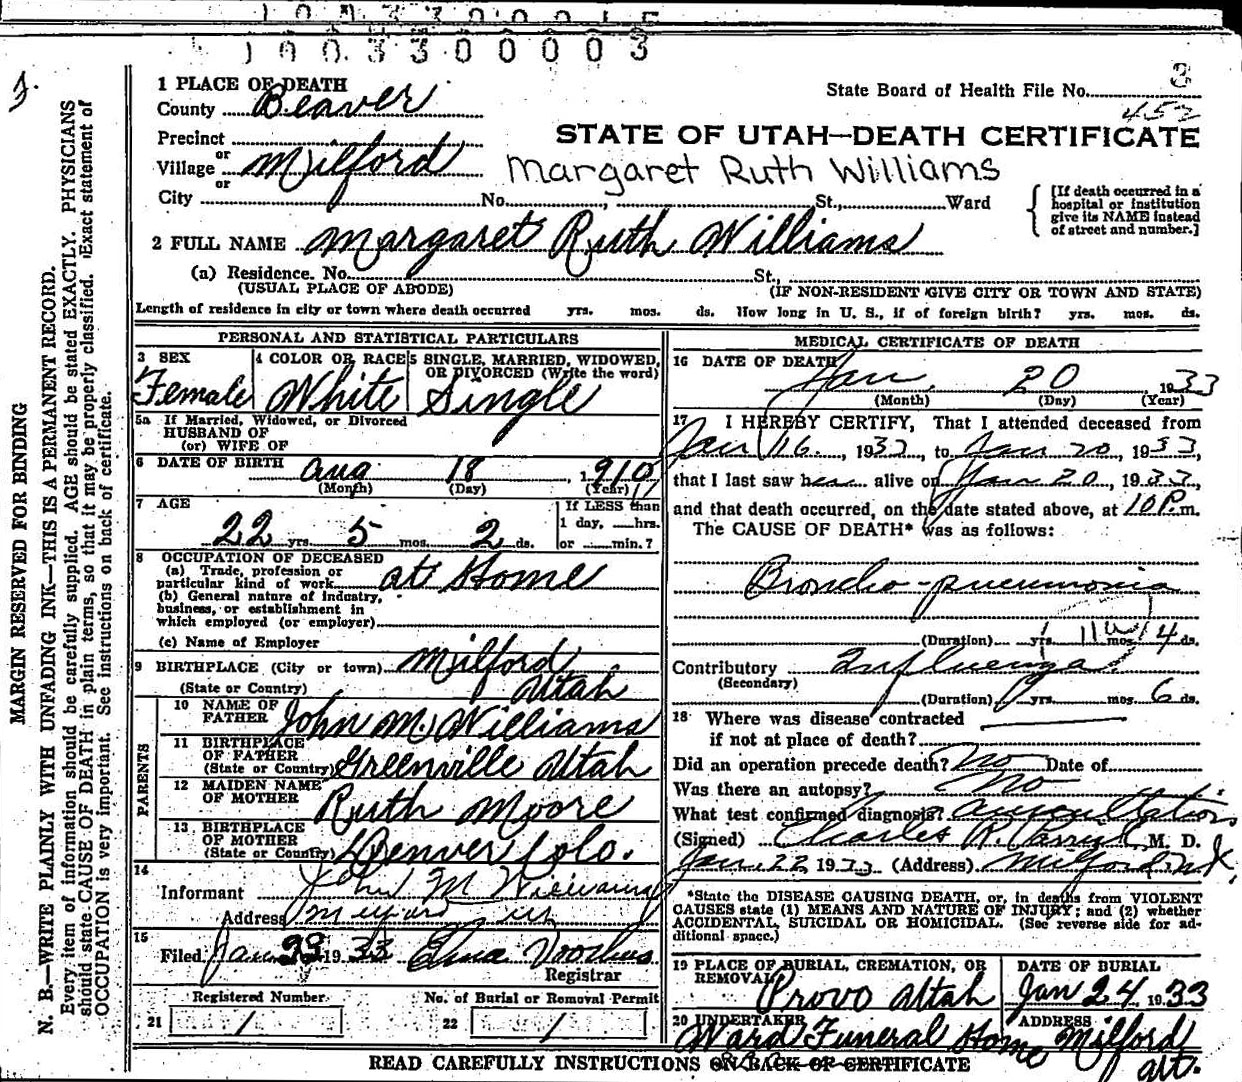 1003300003
1 PLACE OF DEATH
County Beaver
State Board of Health File No. 3
452
Precinct
STATE OF UTAH—DEATH CERTIFICATE
or
Village Milford
Margaret Ruth Williams
or
City No. , St., Ward
[If death occurred in a
hospital or institution
give its NAME instead
of street and number.]
2 FULL NAME Margaret Ruth Williams
(a) Residence. No. St.,
(USUAL PLACE OF ABODE) (IF NON-RESIDENT GIVE CITY OR TOWN AND STATE)
Length of residence in city or town where death occurred yrs. mos. ds. How long in U. S., if of foreign birth? yrs. mos. ds.
PERSONAL AND STATISTICAL PARTICULARS
3 SEX
Female
4 COLOR OR RACE
White
5 SINGLE, MARRIED, WIDOWED,
OR DIVORCED (Write the word)
Single
5a If Married, Widowed, or Divorced
HUSBAND OF
(or) WIFE OF
6 DATE OF BIRTH Aug 18, 1910
(Month) (Day) (Year)
7 AGE
22 yrs. 5 mos. 2 ds.
If LESS than
1 day, hrs.
or min.?
8 OCCUPATION OF DECEASED
(a) Trade, profession or
particular kind of work at Home
(b) General nature of industry,
business, or establishment in
which employed (or employer)
(c) Name of Employer
9 BIRTHPLACE (City or town) Milford
(State or Country) Utah
PARENTS
10 NAME OF
FATHER John M Williams
11 BIRTHPLACE
OF FATHER
(State or Country) Greenville Utah
12 MAIDEN NAME
OF MOTHER Ruth Moore
13 BIRTHPLACE
OF MOTHER
(State or Country) Denver Colo.
14
Informant John M Williams
Address Milford Utah
15
Filed Jan 23 1933 Elna Voorhees
Registrar
Registered Number No. of Burial or Removal Permit
21 1 22 1
MEDICAL CERTIFICATE OF DEATH
16 DATE OF DEATH
Jan. 20 1933
(Month) (Day) (Year)
17 I HEREBY CERTIFY, That I attended deceased from
Jan 16, 1933, to Jan 20, 1933,
that I last saw her alive on Jan 20, 1933,
and that death occurred, on the date stated above, at 10 P.m.
The CAUSE OF DEATH* was as follows:
Broncho-pneumonia
(Duration) yrs. mos. 4 ds.
Contributory Influenza
(Secondary)
(Duration) yrs. mos. 6 ds.
18 Where was disease contracted
if not at place of death?
Did an operation precede death? No Date of
Was there an autopsy? No
What test confirmed diagnosis? auscultation
(Signed) Charles R. M. D.
Jan. 22 1933 (Address) Milford
*State the DISEASE CAUSING DEATH, or, in deaths from VIOLENT
CAUSES state (1) MEANS AND NATURE OF INJURY; and (2) whether
ACCIDENTAL, SUICIDAL OR HOMICIDAL. (See reverse side for ad-
ditional space.)
19 PLACE OF BURIAL, CREMATION, OR
REMOVAL
Provo Utah
DATE OF BURIAL
Jan 24 1933
20 UNDERTAKER
Ward Funeral Home
ADDRESS
Milford
Ut.
READ CAREFULLY INSTRUCTIONS ON BACK OF CERTIFICATE
MARGIN RESERVED FOR BINDING
N. B.—WRITE PLAINLY WITH UNFADING INK—THIS IS A PERMANENT RECORD.
Every item of information should be carefully supplied. AGE should be stated EXACTLY. PHYSICIANS
should state CAUSE OF DEATH in plain terms, so that it may be properly classified. Exact statement of
OCCUPATION is very important. See instructions on back of certificate.